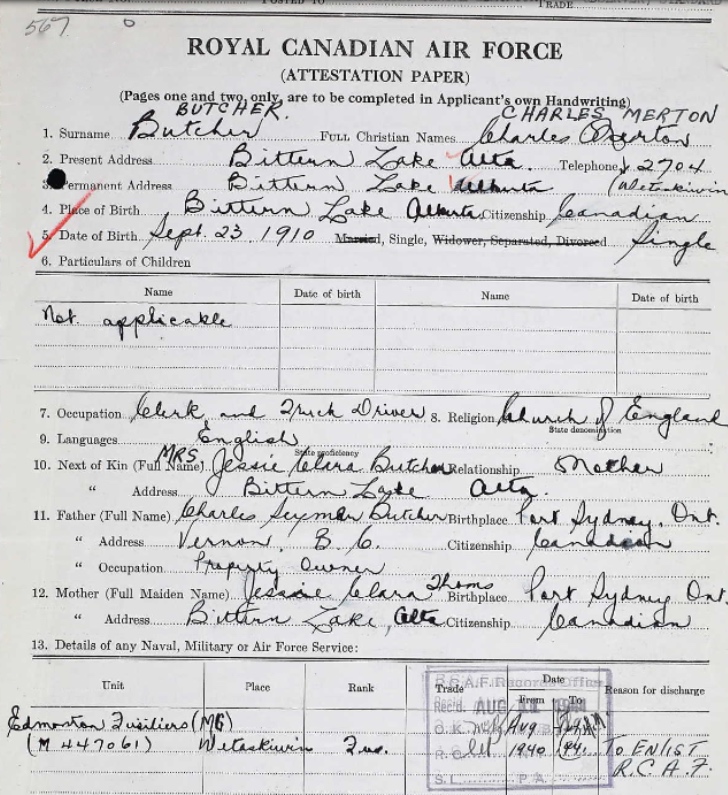 TRADE
567 0
ROYAL CANADIAN AIR FORCE
(ATTESTATION PAPER)
(Pages one and two, only, are to be completed in Applicant's own Handwriting)
BUTCHER. CHARLES MERTON
1. Surname Butcher FULL Christian Names Charles Merton
2. Present Address Bittern Lake Alta. Telephone 2704
3. Permanent Address Bittern Lake Alberta (Wetaskiwin
4. Place of Birth Bittern Lake Alberta Citizenship Canadian
5. Date of Birth Sept. 23 1910 Married, Single, Widower, Separated, Divorced Single
6. Particulars of Children
Name Date of birth Name Date of birth
Not applicable
7. Occupation Clerk and Truck Driver 8. Religion Church of England
State denomination
9. Languages English
State proficiency
MRS.
10. Next of Kin (Full Name) Jessie Clara Butcher Relationship Mother
" Address Bittern Lake Alta.
11. Father (Full Name) Charles Seymor Butcher Birthplace Port Sydney, Ont.
" Address Vernon, B.C. Citizenship Canadian
" Occupation Property Owner
12. Mother (Full Maiden Name) Jessie Clara Thoms Birthplace Port Sydney Ont.
" Address Bittern Lake, Alta Citizenship Canadian
13. Details of any Naval, Military or Air Force Service:
Unit Place Rank Trade Date From To Reason for discharge
R.C.A.F. Records Office
Rec'd. AUG
Edmonton Fusiliers (MG) O.K. Aug
(M 447061) Wetaskiwin Fus. 1940 194 To ENLIST
R.C.A.F.
S.L. P.A.